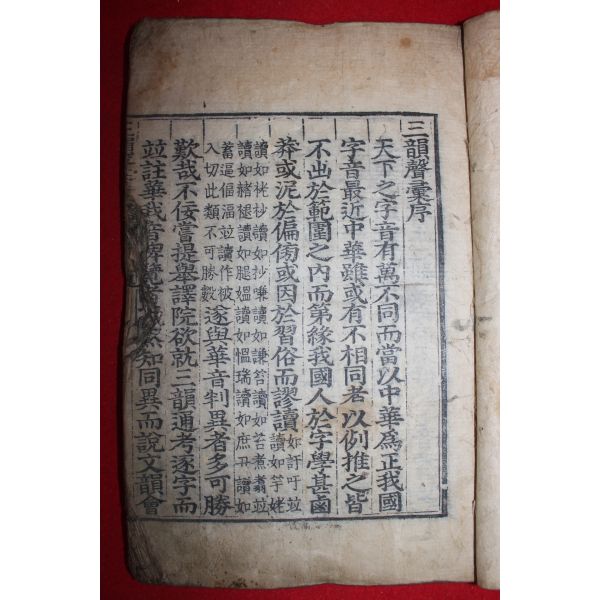 三韻聲彙序
天下之字音有萬不同而當以中華爲正我國
字音最近中華雖或有不相同者以例推之皆
不出於範圍之內而第緣我國人於字學甚鹵
莽或泥於偏傍或因於習俗而謬讀如訏吁竝讀如芋姥
讀如姥杪讀如抄嗛讀如謙筶讀如苔煮翥竝
讀如赭褪讀如腿媼讀如慍瑞讀如庶丑讀如
蓄逼偪湢竝讀作被
入切此類不可勝數遂與華音判異者多可勝
歎哉不佞嘗提擧譯院欲就三韻通考逐字而
竝註華我音俾覽知同異而說文韻會